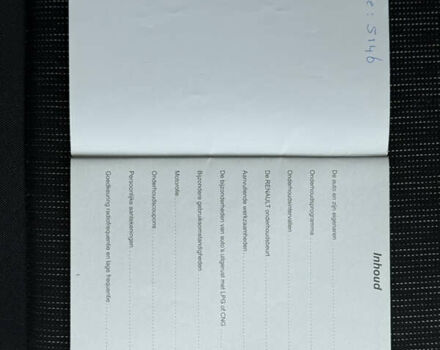 e: 5146
Inhoud
De auto en zijn eigenaren
Onderhoudsprogramma
Onderhoudsintervallen
De RENAULT onderhoudsbeurt
Aanvullende werkzaamheden
De bijzonderheden van auto's uitgerust met LPG of CNG
Bijzondere gebruiksomstandigheden
Motorolie
Onderhoudscoupons
Persoonlijke aantekeningen
Goedkeuring radiofrequentie en lage frequentie